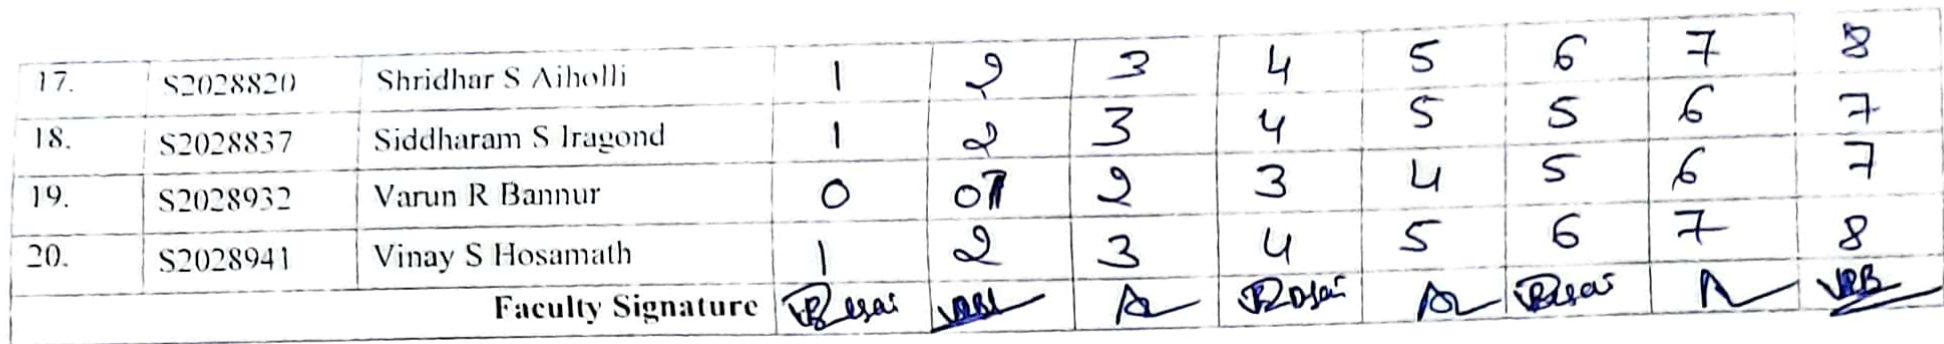 17. S2028820 Shridhar S Aiholli 1 2 3 4 5 6 7 8
18. S2028837 Siddharam S Iragond 1 2 3 4 5 5 6 7
19. S2028932 Varun R Bannur 0 01 2 3 4 5 6 7
20. S2028941 Vinay S Hosamath 1 2 3 4 5 6 7 8
Faculty Signature